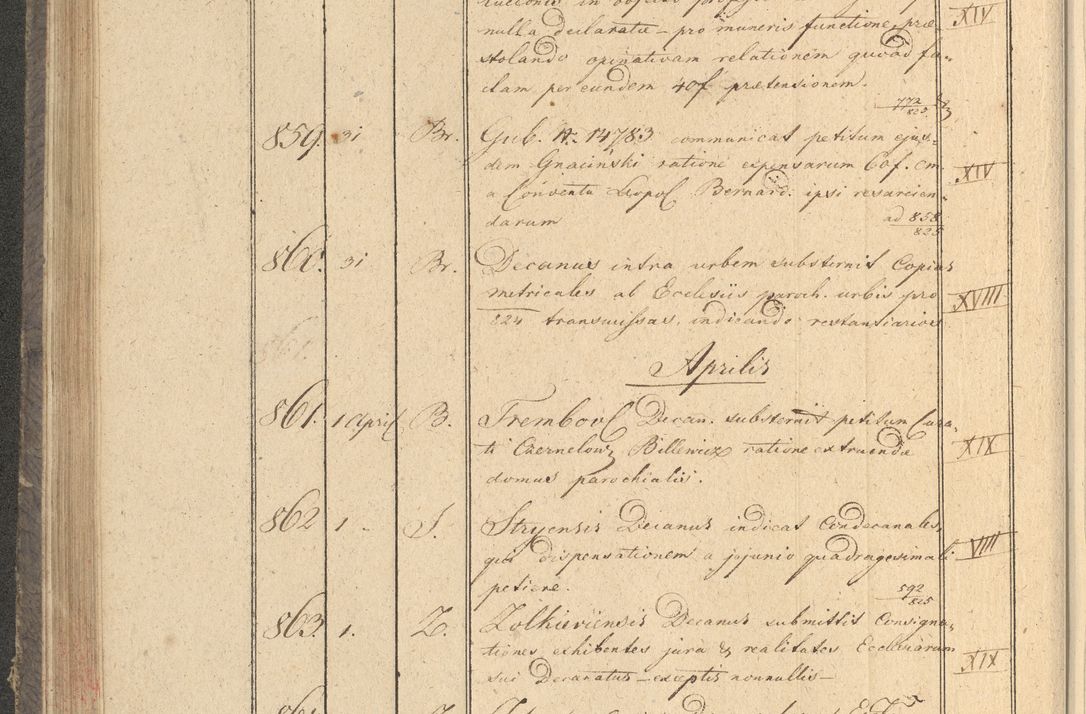 nulla declarata – pro muneris functione præ
stolando opinativam relationem quoad fa-
ctam per eundem 40f prætensionem.
772/825
XIV
859. 31 Br. Gub. N: 14783 communicat petitum ejus-
dem Gnaciński ratione expensarum 60f. Cm
XIV
a Conventu Leopol Bernard: ipsi resarcien-
darum ad 858/825
860. 31 Br. Decanus intra urbem substernit Copias
metricales ab Ecclesiis paroch. urbis pro
XVIII
824 transmissas, indicando restantiarios
Aprilis
861. 1 April B. Trembovl Decan. substernit petitum Cura-
ti Czernelow Billewicz ratione extruendæ
XIX
domus parochialis.
862 1. S. Stryensis Decanus indicat Condecanales,
qui dispensationem a jejunio quadragesimali
VIII
petiere. 592/825
863. 1. Z. Zolkieviensis Decanus submittit Consigna-
tiones exhibentes jura & realitates Ecclesiarum
XIX
sui Decanatus – exceptis nonnullis –